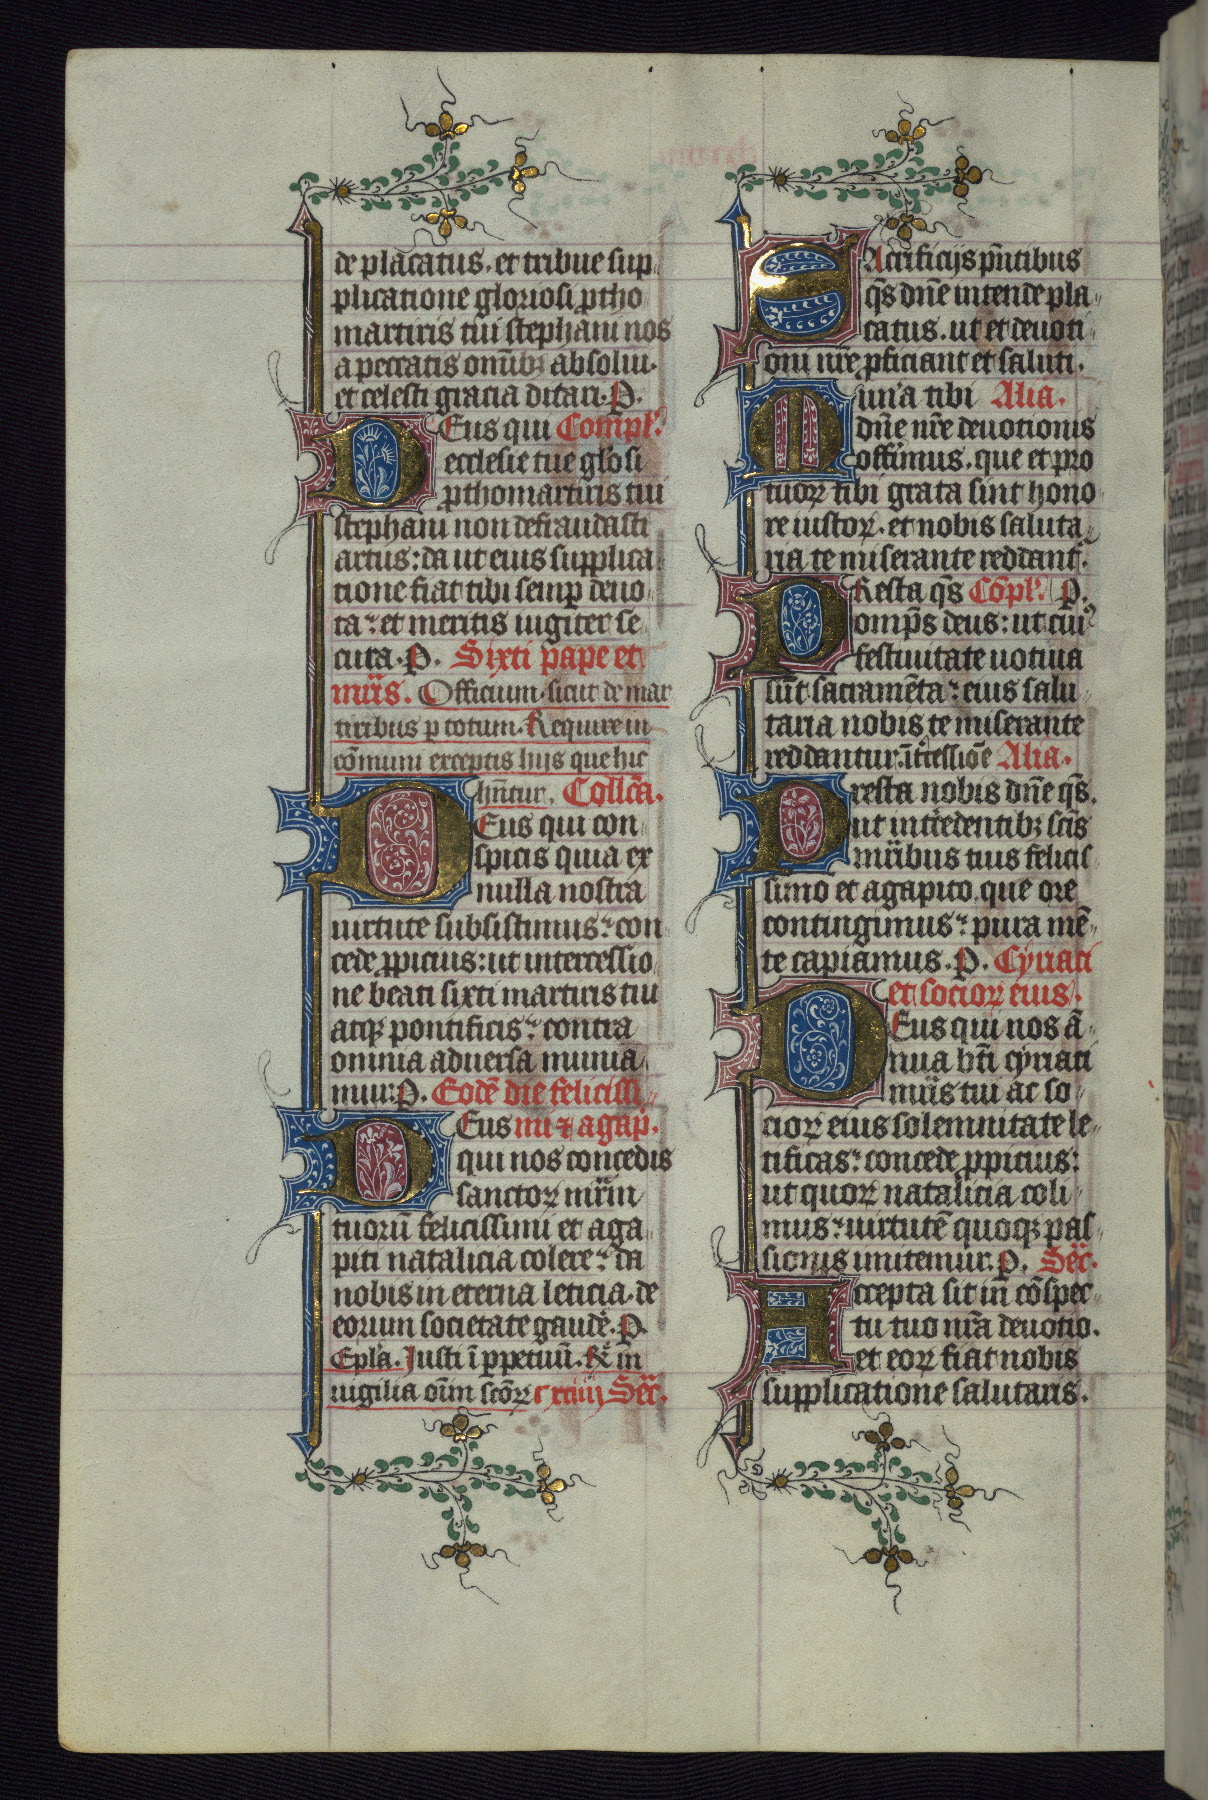 de placatus. et tribue sup
plicatione gloriosi ꝓtho
martiris tui stephani nos
a peccatis om̄ibꝫ absolui.
et celesti gracia ditari. P.
DEus qui Complꝰ.
ecclesie tue gło͛si
ꝓthomartiris tui
stephani non defraudasti
artus: da ut eius supplica
tione fiat tibi semꝑ deuo
ta: et meritis iugiter se
cura. P. Sixti pape et
mr̄is. Officium. sicut de mar
tiribus ꝑ totum. Require in
cōmuni exceptis hijs que hic
hn̄tur. Collcā.
DEus qui con
spicis quia ex
nulla nostra
uirtute subsistimus: con
cede ꝓpicius: ut intercessio
ne beati sixti martiris tui
atqꝫ pontificis: contra
omnia aduersa munia
mur. P. Eodē die felicissi
DEus mi ⁊ agap̄.
qui nos concedis
sanctoꝝ mr̄m
tuorū felicissimi et aga
piti natalicia colere: da
nobis in eterna leticia. de
eorum societate gaudē. P.
Epłā. Justi ī ꝑpetuū. Rͫ in
uigilia oīm sc̄oꝝ cxciiij Secͬ.
SAcrificijs pn̄tibus
qs̄ dn̄e intende pla
catus. ut et deuoti
oni nr̄e ꝓficiant et saluti.
Mun̄a tibi Alia.
dn̄e nr̄e deuotionis
offerimus. que et pro
tuoꝝ tibi grata sint hono
re iustoꝝ. et nobis saluta
ria te miserante reddant.
PResta qs̄ Cōplꝰ. P.
omp̄s deus: ut cuiꝰ
festiuitate uotiua
sūt sacramēta: eius salu
taria nobis te miserante
reddantur. īt͛cessiōe Alia.
Presta nobis dn̄e qs̄.
ut intc̄edentibꝫ sc̄is
mr̄ibus tuis felicis
simo et agapito. que ore
contingimus: pura mē
te capiamus. P. Cyriaci
et socioꝝ eius.
DEus qui nos ā
nua bt̄i cyriaci
mr̄is tui ac so
cioꝝ eius solemnitate le
tificas: concede ꝓpicius:
ut quoꝝ natalicia coli
mus: uirtutē quoqꝫ pas
sionis imitemur. P. Secͬ.
Accepta sit in cōspec
tu tuo nr̄a deuotio.
et eoꝝ fiat nobis
supplicatione salutaris.